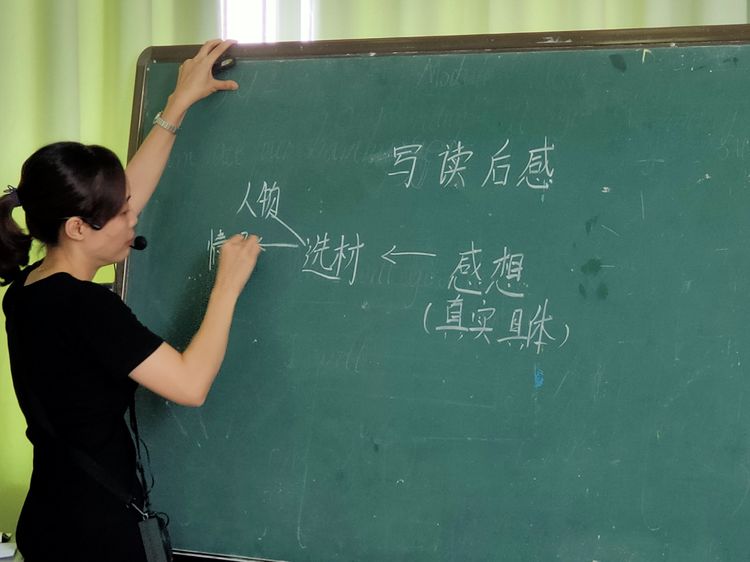 写读后感
人物
情
选材 ← 感想
(真实具体)